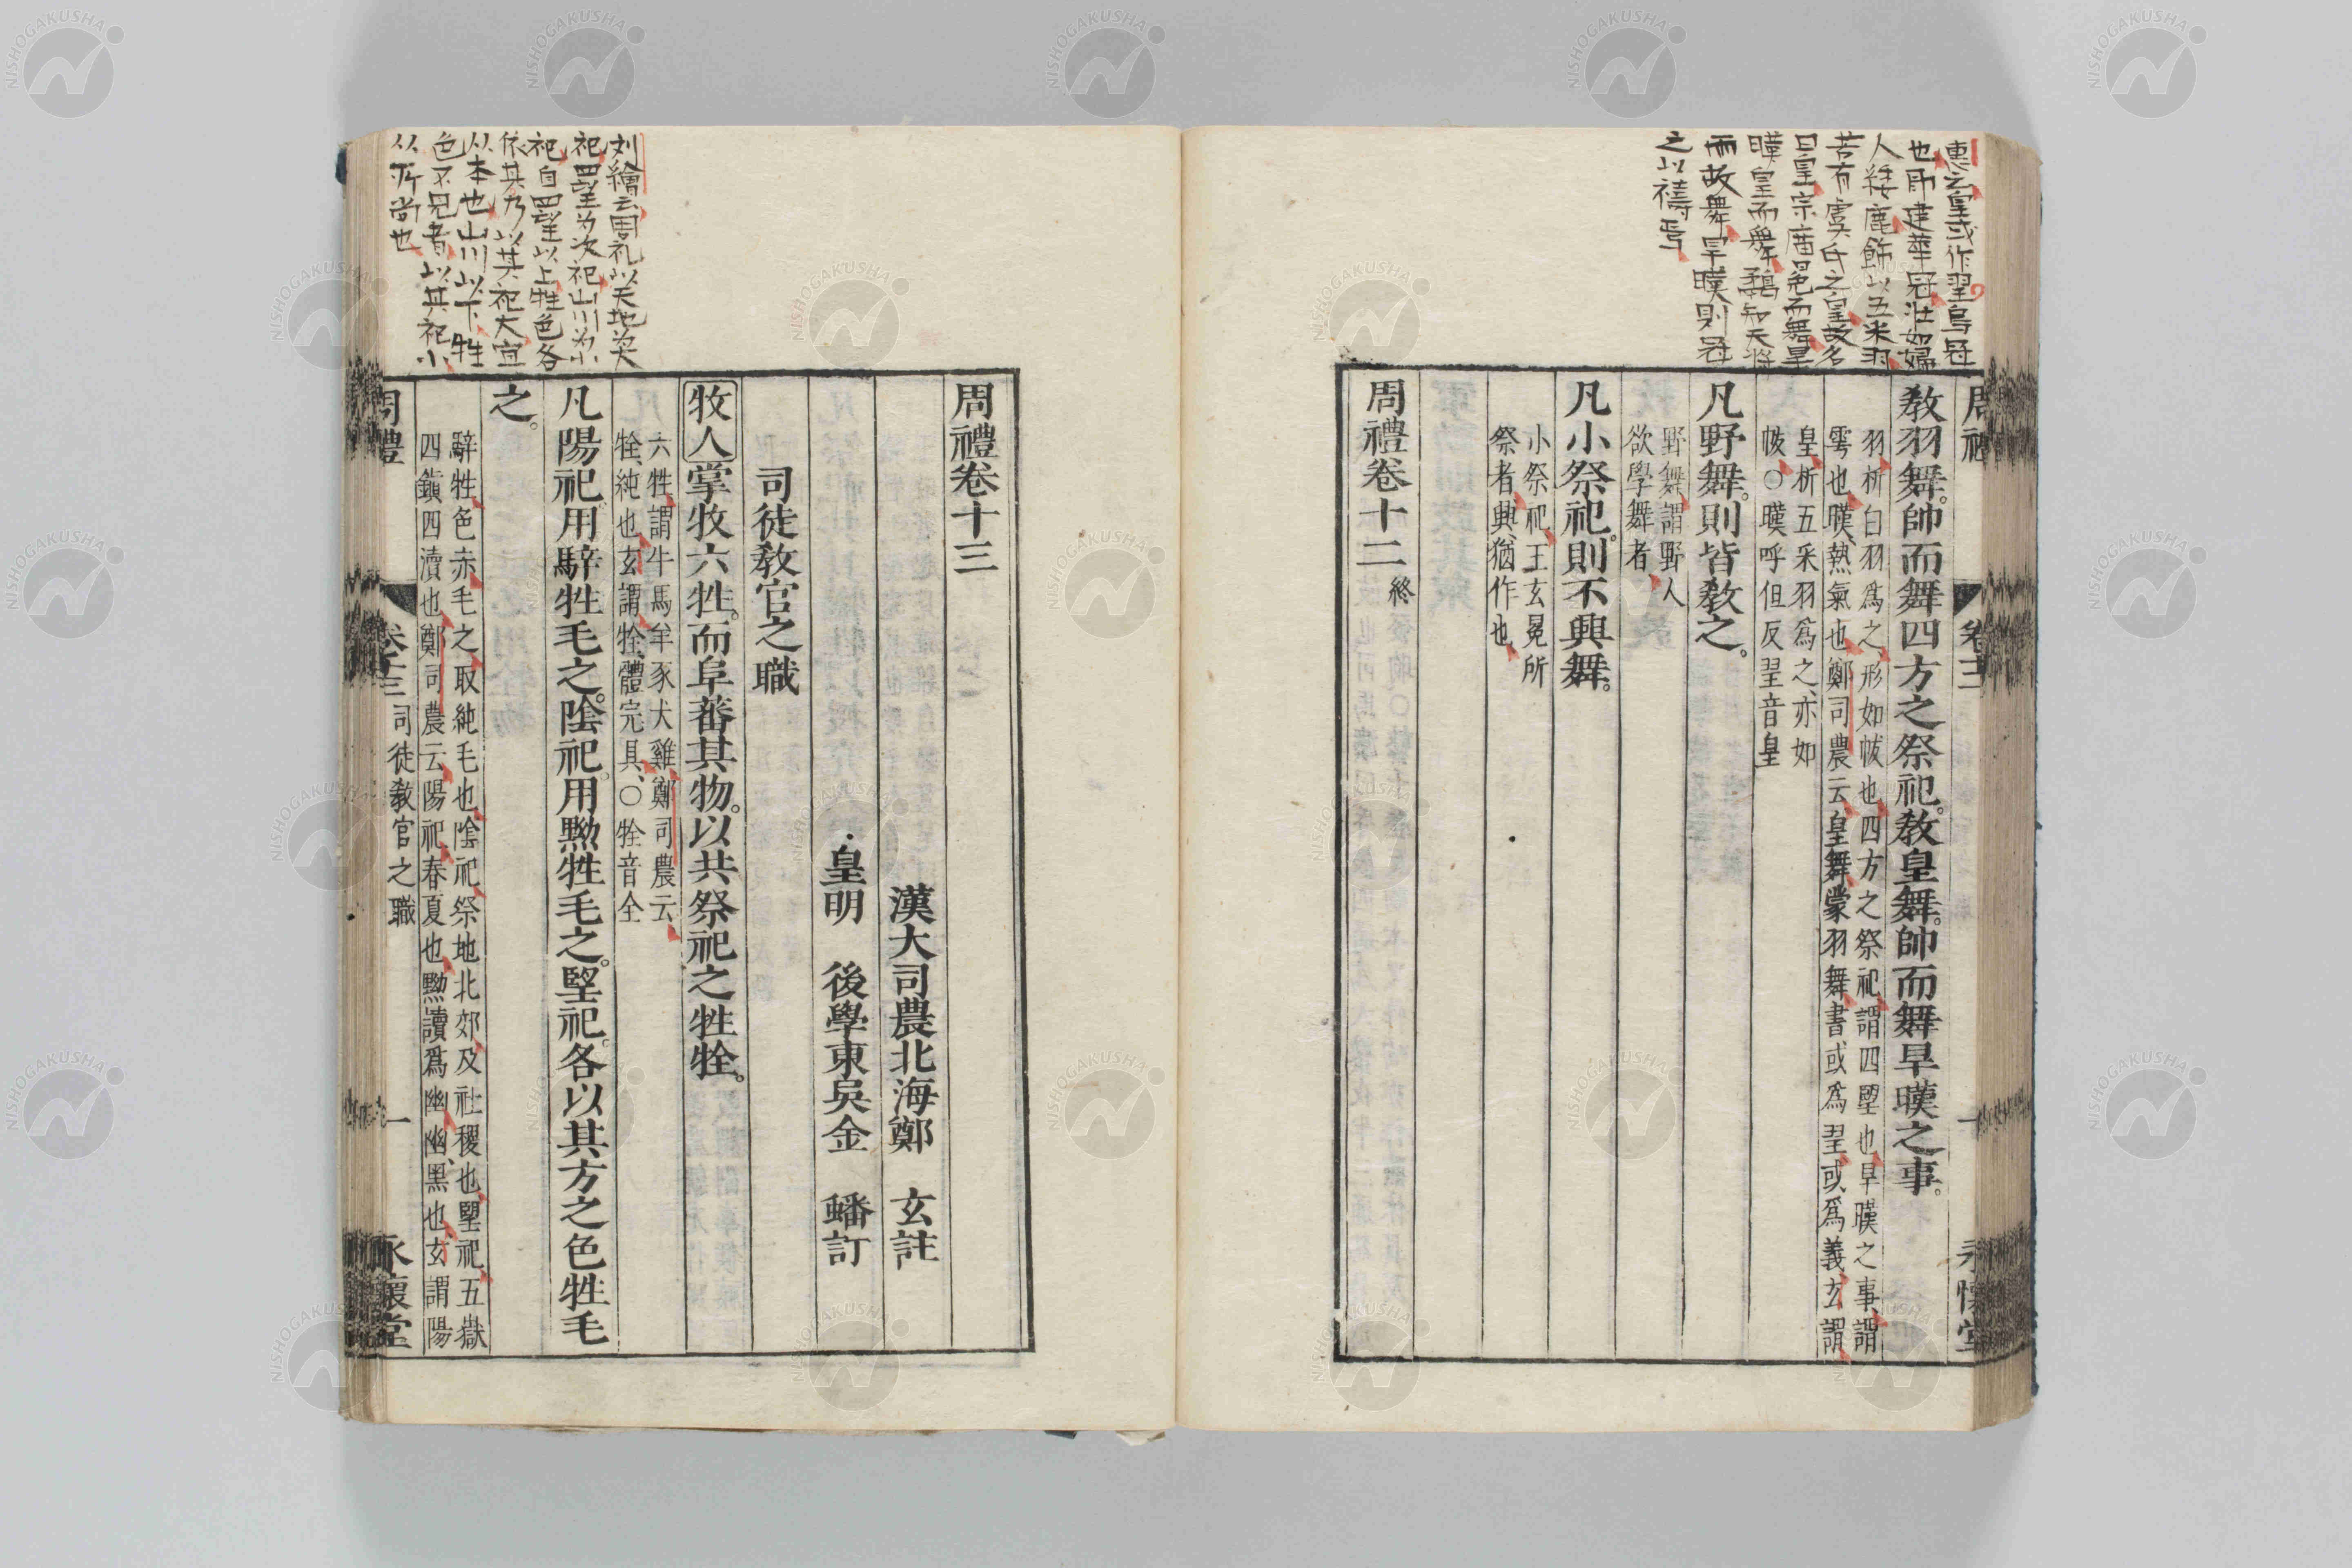 惠云皇或作䍿鳥冠
也即建華冠壯如婦
人緌鹿飾以五采羽
若有虞氏之皇故名
曰皇宗庿冕而舞旱
暵皇而舞鷸知天將
雨故舞旱暵則冠
之以禱焉
周禮 卷十二 十 永懷堂
教羽舞。帥而舞四方之祭祀。教皇舞。帥而舞旱暵之事。
羽析白羽爲之形如帗也四方之祭祀謂四朢也旱暵之事謂
雩也暵熱氣也鄭司農云皇舞蒙羽舞書或爲䍿或爲義玄謂
皇析五采羽爲之亦如
帗〇暵呼但反䍿音皇
凡野舞。則皆教之。
野舞謂野人
欲學舞者
凡小祭祀。則不興舞。
小祭祀王玄冕所
祭者興猶作也
周禮卷十二 終
周禮卷十三
漢大司農北海鄭 玄註
皇明 後學東吳金 蟠訂
司徒教官之職
牧人掌牧六牲。而阜蕃其物。以共祭祀之牲牷。
六牲謂牛馬羊豕犬雞鄭司農云
牷純也玄謂牷體完具〇牷音全
凡陽祀。用騂牲毛之。陰祀。用黝牲毛之。朢祀。各以其方之色牲毛
之。
騂牲色赤毛之取純毛也陰祀祭地北郊及社稷也朢祀五嶽
四鎭四瀆也鄭司農云陽祀春夏也黝讀爲幽幽黑也玄謂陽
周禮 卷十三 司徒教官之職 一 永懷堂
刘繪云周礼以天地為大
祀四望为次祀山川为小
祀自四望以上牲色各
依其方以其祀大宜
从本也山川以下牲
色不見者以其祀小
从所尚也